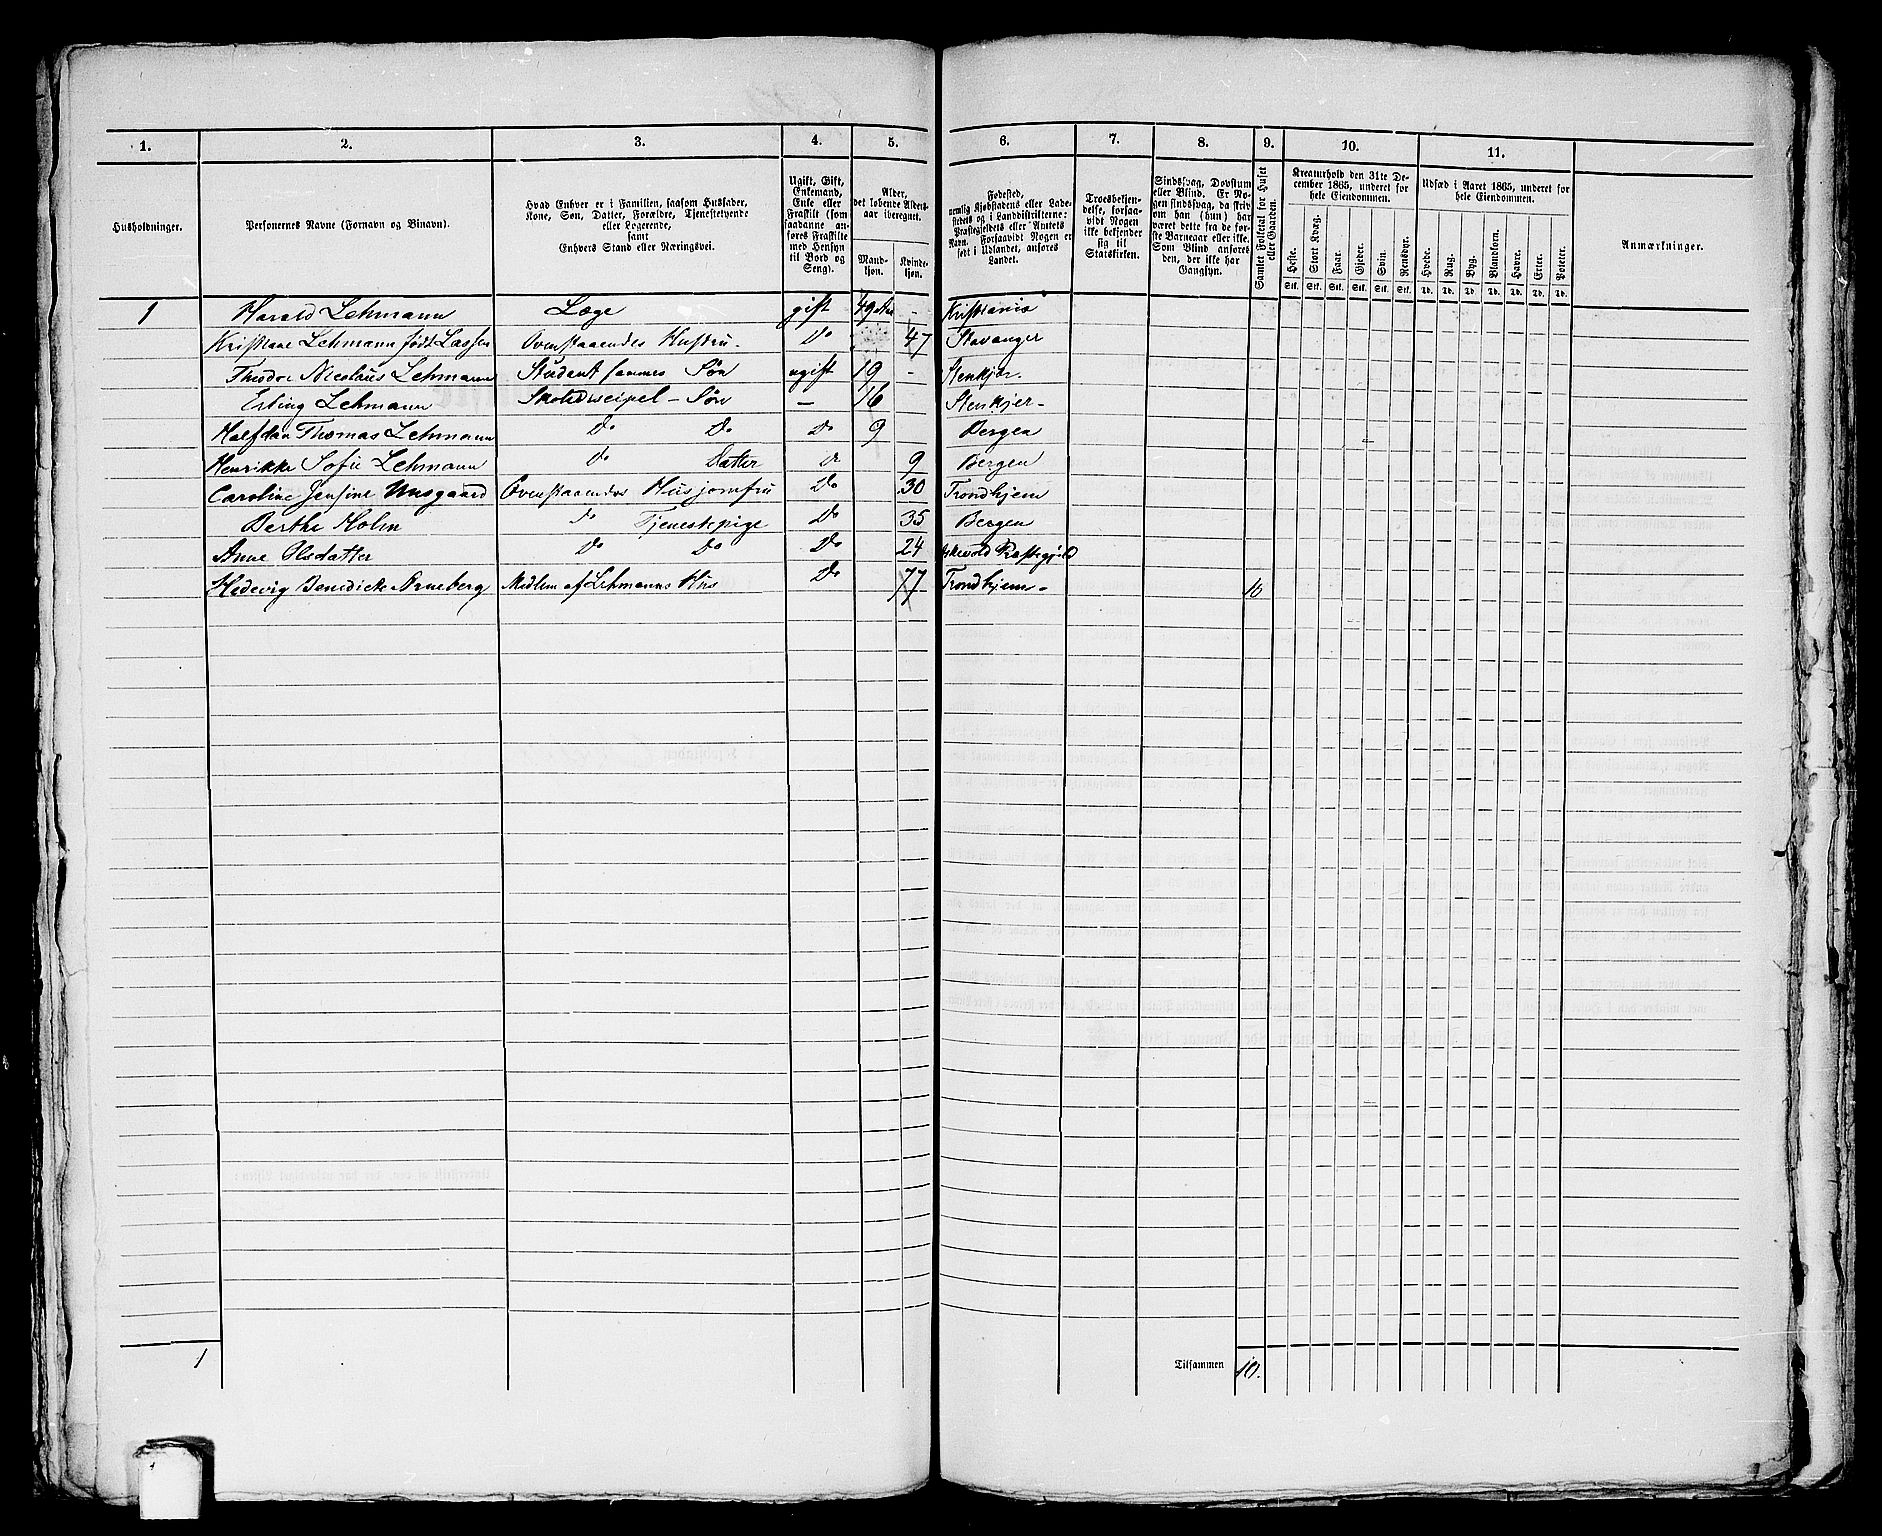 1. 2. 3. 4. 5. 6. 7. 8. 9. 10. 11.
Husholdninger.
Personernes Navne (Fornavn og Binavn).
Hvad Enhver er i Familien, saasom Husfader,
Kone, Søn, Datter, Forældre, Tjenestetyende
eller Logerende,
samt
Enhvers Stand eller Næringsvei.
Ugift, Gift,
Enkemand,
Enke eller
Fraskilt (som
saadanne an-
føres Fraskilte
med Hensyn
til Bord og
Seng).
Alder,
det løbende Alders-
aar iberegnet.
Mand-
kjøn.
Kvinde-
kjøn.
Fødested,
nemlig Kjøbstadens eller Lade-
stedets og i Landdistrikterne:
Præstegjeldets eller Annexets
Navn. Forsaavidt Nogen er
født i Udlandet, anføres
Landet.
Troesbekjen-
delse, forsaa-
vidt Nogen
ikke bekjender
sig til
Statskirken.
Sindssvag, Døvstum
eller Blind. Er No-
gen sindssvag, da skriv
om han (hun) har
været dette fra de før-
ste Barneaar eller ikke.
Som Blind anføres
den, der ikke har
Gangsyn.
Samlet Folketal for Huset
eller Gaarden.
Kreaturhold den 31te De-
cember 1865, underet for
hele Eiendommen.
Heste. Stort Kvæg. Faar. Gjeder. Svin. Rensdyr.
Stk. Stk. Stk. Stk. Stk. Stk.
Udsæd i Aaret 1865, underet for
hele Eiendommen.
Hvede. Rug. Byg. Blandkorn. Havre. Erter. Poteter.
Td. Td. Td. Td. Td. Td. Td.
Anmærkninger.
1 Harald Lehmann Læge gift 49 - Kristiania
Kristiane Lehmann født Lassen Ovenstaaendes Hustru. Do 47 Stavanger
Theodor Nicolaus Lehmann Student sammes Søn ugift 19 - Stenkjær.
Erling Lehmann Skoledisсipel - Søn - 16 Stenkjer -
Halfdan Thomas Lehmann Do Do Do 9 Bergen
Henrikke Sofie Lehmann Do Datter Do 9 Bergen
Caroline Jensine Ovenstaaendes Husjomfru Do 30 Trondhjem
Berthe Holm Do Tjenestepige Do 35 Bergen
Anne Olsdatter Do Do Do 24 Askevold Præstegjeld
Hedevig Benedicte Arneberg Medlem af Lehmanns Hus Do 77 Trondhjem - 10
1 Tilsammen 10.